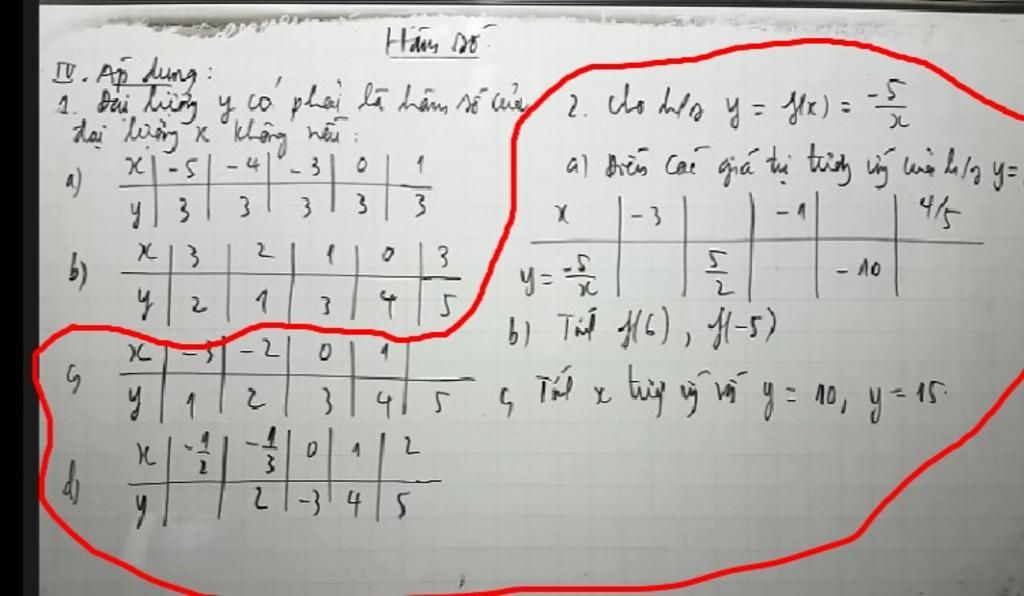 Hàm số
IV. Áp dụng:
1. Đại lượng y có phải là hàm số của
đại lượng x không nếu:
a) x | -5 | -4 | -3 | 0 | 1
y | 3 | 3 | 3 | 3 | 3
b) x | 3 | 2 | 1 | 0 | 3
y | 2 | 1 | 3 | 4 | 5
c, x | -3 | -2 | 0 | 1 |
y | 1 | 2 | 3 | 4 | 5
d) x | -1/2 | -1/3 | 0 | 1 | 2
y | | 2 | -3 | 4 | 5
2. Cho h/s y = f(x) = -5/x
a) Điền các giá trị tương ứng của h/s y=
x | -3 | | -1 | | 4/5
y = -5/x | | 5/2 | | -10 |
b) Tính f(6), f(-5)
c, Tính x tương ứng với y = 10, y = 15.